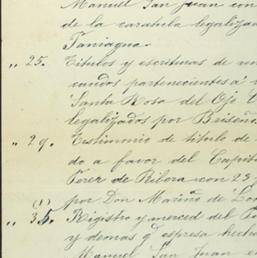 Manuel San Juan con
de la caratula legalizad
Taniagua.
" 25. Titulos y escrituras de un
candos partenecientes a
Santa Rosa del Ojo
legalizados por Briseñ
" 29. Testimonio de titulo de
do a favor del Capit
Perez de Ribera con 29
por Don Marino de
(1)
" 35. Registro y merced del
y demas q espresa hech
Manuel San Juan en